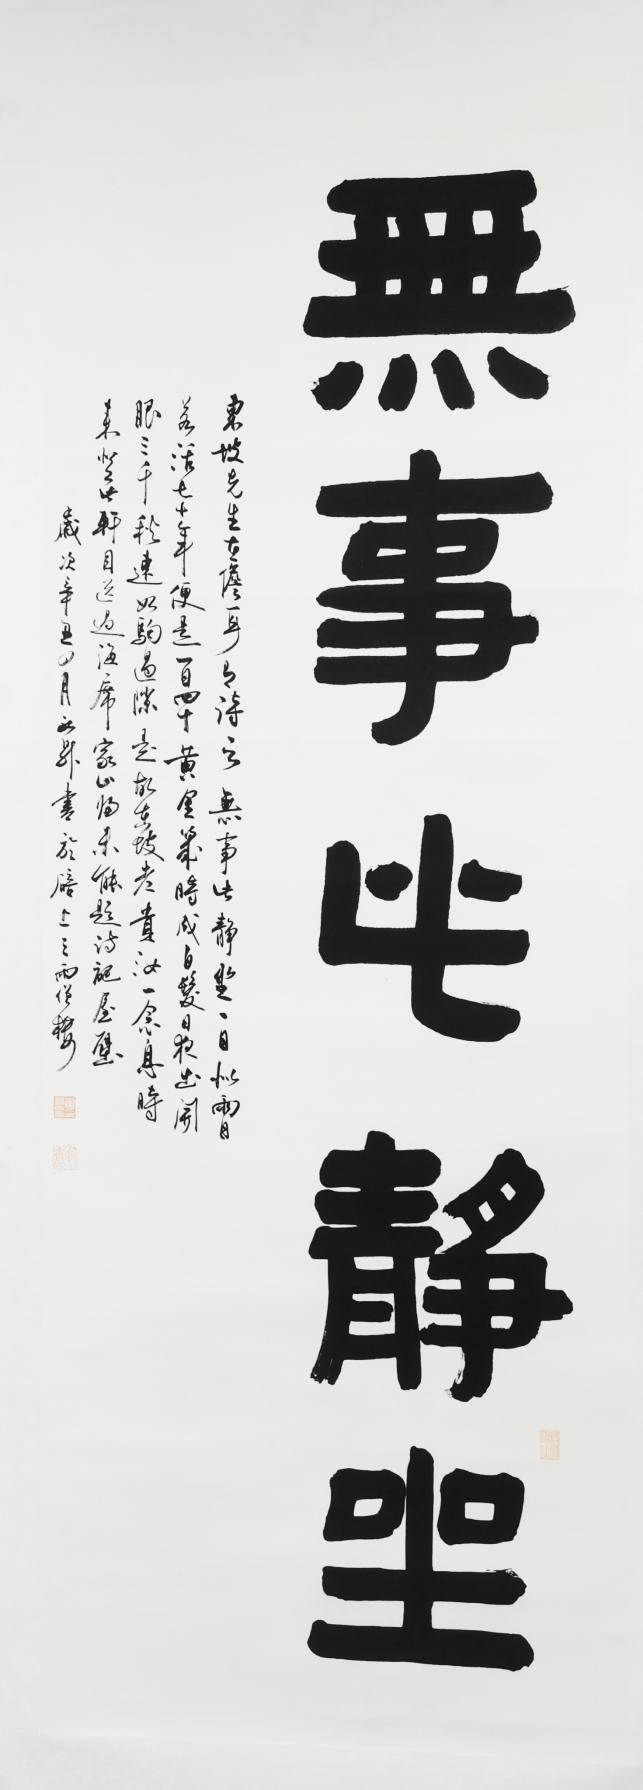 無事此靜坐
東坡先生在儋耳詩云無事此靜坐一日似兩日
若活七十年便是百四十黃金幾時成白髮日夜出開
眼三千秋速如駒過隙是故東坡老貴汝一念息時
來登此軒目送過海席家山歸未能題詩記屋壁
歲次辛丑四月書於上之雨僧樓